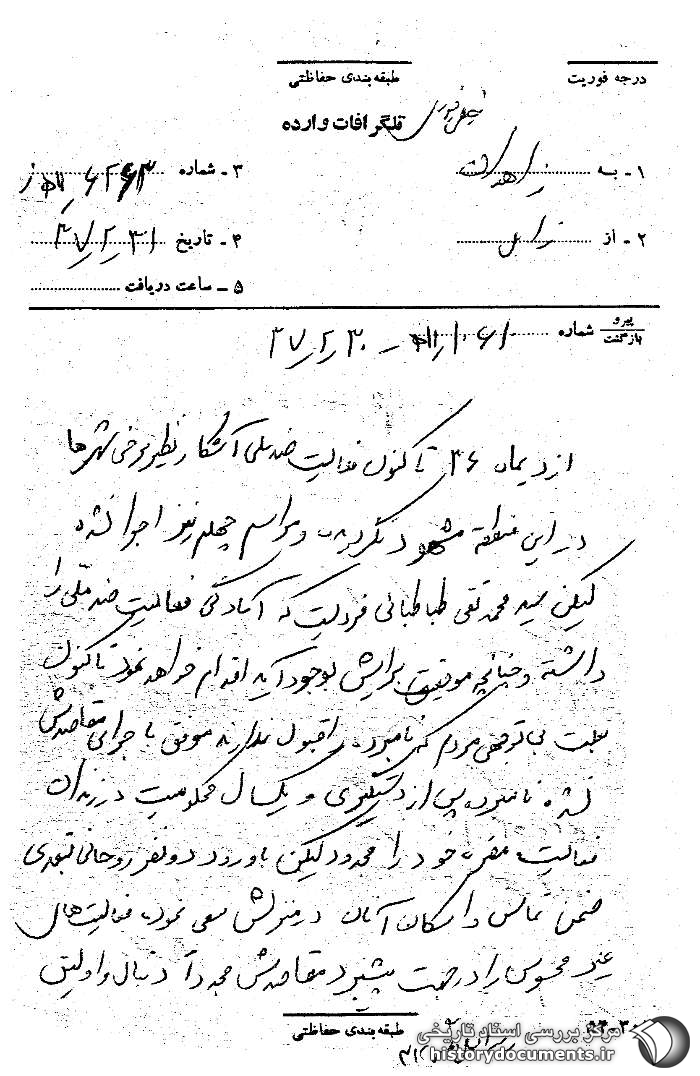 درجه فوریت
طبقه‌بندی حفاظتی
خیلی فوری
تلگرافات وارده
۱ - به زاهدان
۳ - شماره
۲ - از زابل
۴ - تاریخ ۳۷٫۲٫۳۱
۵ - ساعت دریافت
پیرو
بازگشت شماره ۳۷٫۲٫۳۰
از دیماه ۳۶ تاکنون فعالیت ضد ملی آشکار نظیر برخی شهرها
در این منطقه مشهود نگردیده و مراسم چهلم نیز اجرا نشده
لیکن سید محمد تقی طباطبائی فردیست که آمادگی فعالیت ضد ملی را
داشته و چنانچه موفقیتی برایش بوجود آید اقدام خواهد نمود تاکنون
بعلت بی توجهی مردم که نامبرده را قبول ندارند موفق با جرای مقاصدش
نشده نامبرده پس از دستگیری و یکسال محکومیت در زندان
فعالیت مضره خود را محدود لیکن با ورود دو نفر روحانی تبعیدی
ضمن تماس و اسکان آنان در منزلش سعی نمود، فعالیت‌های
غیر محسوس را در جهت پیشبرد مقاصدش مجدداً دنبال و اولین
طبقه‌بندی حفاظتی
مرکز بررسی اسناد تاریخی
historydocuments.ir